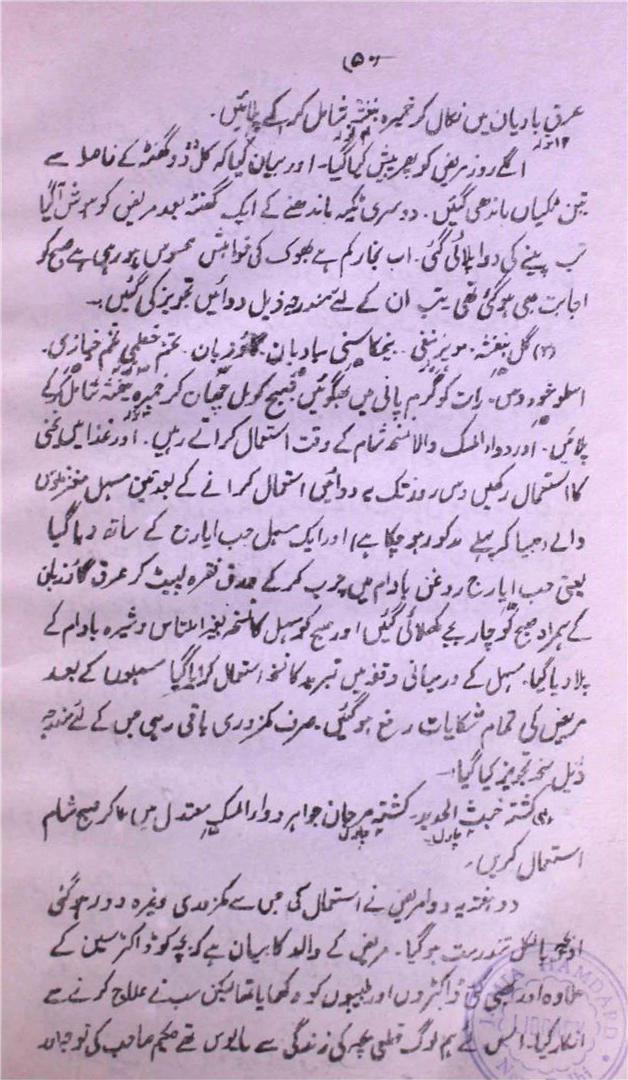 (۵۰)
عرق بادیان میں نکال کر خمیرہ بنفشہ شامل کرکے پلائیں۔
۱۲تولہ
اگلے روز مریض کو پھر پیش کیا گیا۔ اور بیان کیا کہ کل دو دو گھنٹہ کے فاصلے سے
تین ٹکیاں باندھی گئیں۔ دوسری ٹکیہ باندھنے کے ایک گھنٹہ بعد مریض کو ہوش آگیا
تب پینے کی دوا پلائی گئی۔ اب بخار کم ہے بھوک کی خواہش محسوس ہو رہی ہے صبح کو
اجابت بھی ہوگئی تھی تب ان کے لئے مندرجہ ذیل دوائیں تجویز کی گئیں:۔
گل بنفشہ۔ مویز منقی۔ بیخ کاسنی بادیان۔ گاؤزبان۔ تخم خطمی تخم خبازی۔
اسطوخودوس۔ رات کو گرم پانی میں بھگوئیں صبح کو مل چھان کر خمیرہ بنفشہ شامل کرکے
پلائیں۔ اور دواء المسک والا نسخہ شام کے وقت استعمال کراتے رہیں۔ اور غذا میں یخنی
کا استعمال رکھیں دس روز تک یہ دوائیں استعمال کرانے کے بعد تین مسہل مغز فلوس
والے (جیسا کہ پہلے مذکور ہو چکا ہے) اور ایک مسہل حب ایارج کے ساتھ دیا گیا
یعنی حب ایارج روغن بادام میں چرب کرکے ورق نقرہ لپیٹ کر عرق گاؤزبان
کے ہمراہ صبح کو چار بجے کھلائی گئیں اور صبح کو مسہل کا نسخہ بغیر املتاس و شیرہ بادام کے
پلا دیا گیا۔ مسہل کے درمیانی وقفہ میں تبرید کا نسخہ استعمال کرایا گیا مسہلوں کے بعد
مریض کی تمام شکایات رفع ہوگئیں۔ صرف کمزوری باقی رہی جس کے لئے مندرجہ
ذیل نسخہ تجویز کیا گیا:۔
کشتہ خبث الحدید۔ کشتہ مرجان جواہر دواء المسک معتدل میں ملاکر صبح شام
چاول چاول
استعمال کریں۔
دو ہفتہ یہ دوا مریض نے استعمال کی جس سے کمزوری وغیرہ دور ہوگئی
اور بچہ بالکل تندرست ہوگیا۔ مریض کے والد کا بیان ہے کہ بچہ کو ڈاکٹر سین کے
علاوہ اور بھی کئی ڈاکٹروں اور طبیبوں کو دکھایا تھا لیکن سب نے علاج کرنے سے
انکار کیا۔ اس لئے ہم لوگ قطعی بچہ کی زندگی سے مایوس تھے حکیم صاحب کی توجہ اور
JAMIA HAMDARD
LIBRARY